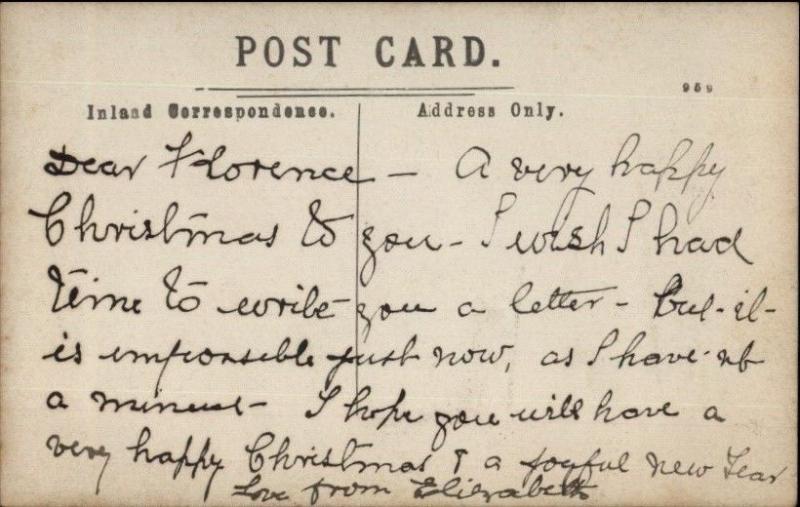 POST CARD.
959
Inland Correspondence. Address Only.
Dear Florence — A very happy
Christmas to you - I wish I had
time to write you a letter - but it
is impossible just now, as I have nt
a minute - I hope you will have a
very happy Christmas & a joyful New Year
Love from Elizabeth